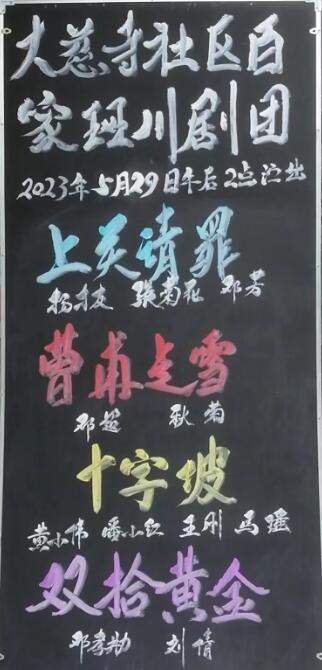 大慈寺社区百
家班川剧团
2023年5月29日午后2点演出
上关请罪
杨才友 張菊花 邓芳
曹甫走雪
邓超 秋菊
十字坡
黄小伟 潘小红 王刚 馬瑶
双拾黄金
邓孝勋 刘倩